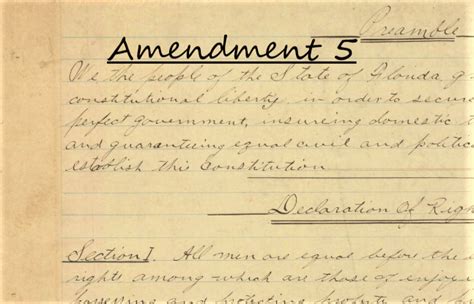 Preamble
Amendment 5
We the people of the State of Florida g
constitutional liberty, in order to secure
perfect government, insureing domestic t
and guaranteeing equal civil and politica
establish this Constitution
Declaration Of Righ
Section I. All men are equal before the
rights among which are those of enjoy
possessing and protecting property and